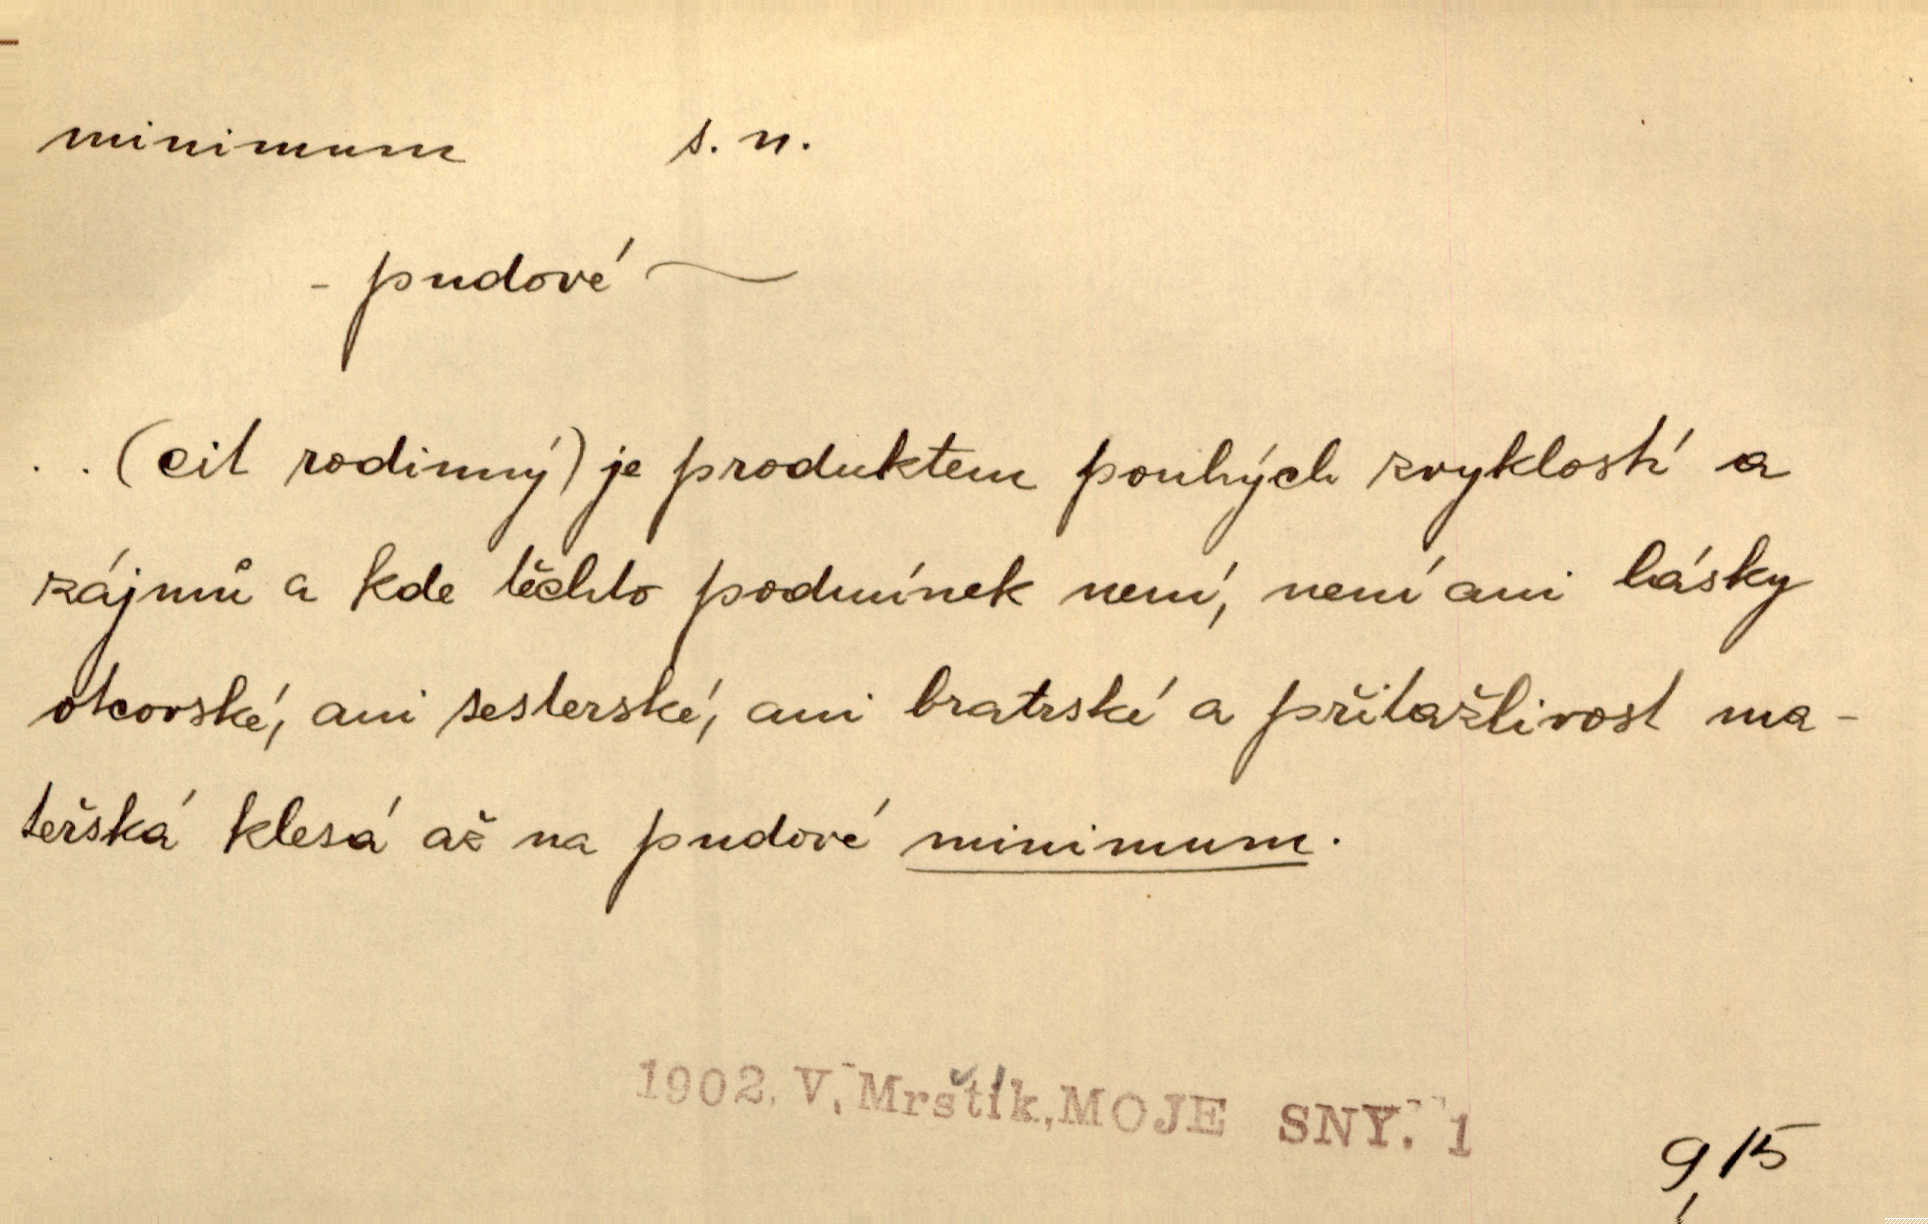 minimum s. n.
- pudové ~
. . (cit rodinný) je produktem pouhých zvyklostí a
zájmů a kde těchto podmínek není, není ani lásky
otcovské, ani sesterské, ani bratrské a přitažlivost ma-
teřská klesá až na pudové minimum.
1902. V. Mrštík, MOJE SNY. 1
9/15